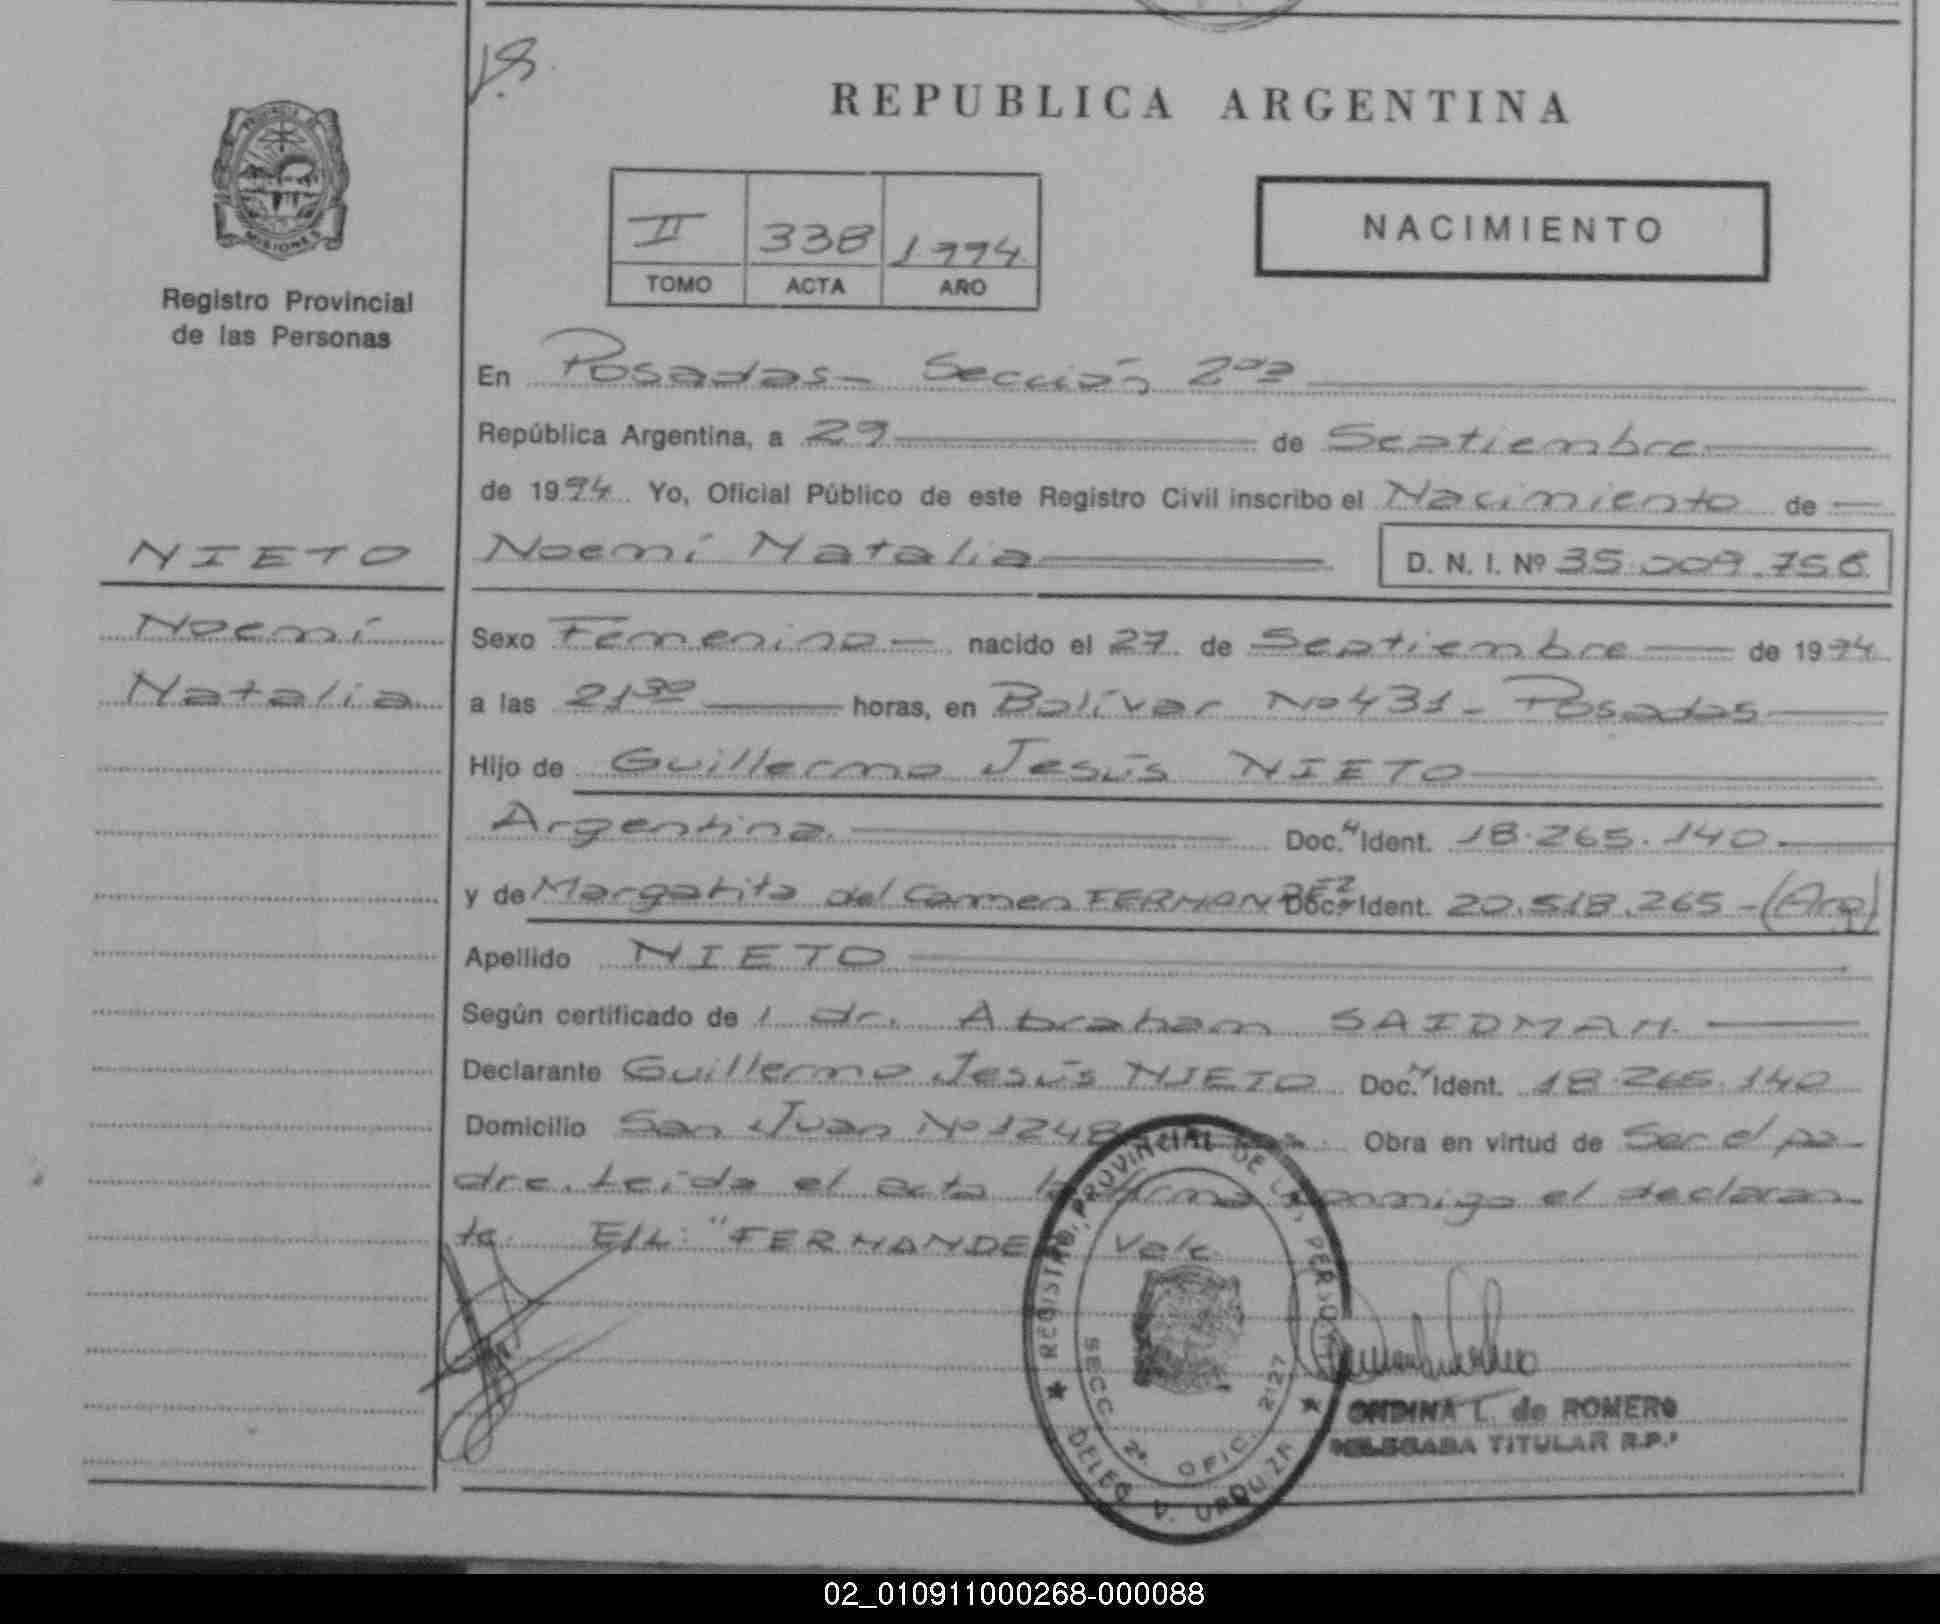 18.
PROVINCIA DE
MISIONES
Registro Provincial
de las Personas
NIETO
Noemí
Natalia
REPUBLICA ARGENTINA
II 338 1994
TOMO ACTA AÑO
NACIMIENTO
En Posadas - Sección 2da
República Argentina, a 29 de Septiembre
de 1994 Yo, Oficial Público de este Registro Civil inscribo el Nacimiento de
Noemí Natalia D. N. I. Nº 35.009.756
Sexo Femenino nacido el 27 de Septiembre de 1994
a las 21 30 horas, en Bolívar Nº 431 - Posadas
Hijo de Guillermo Jesús NIETO
Argentina. Doc. Ident. 18.265.140
y de Margarita del Carmen FERNANDEZ Doc. Ident. 20.518.265 - (Arg)
Apellido NIETO
Según certificado de l dr. Abraham SAIDMAN.
Declarante Guillermo Jesús NIETO Doc. Ident. 18.265.140
Domicilio San Juan Nº 1248 Obra en virtud de Ser el pa-
dre. Leída el acta la firma conmigo el declaran-
te. E/L: "FERNANDEZ Vale.
REGISTRO PROVINCIAL DE LAS PERSONAS
SECC. 2ª OFIC. 2127
DELEG. V. URQUIZA
ONDINA L. de ROMERO
DELEGADA TITULAR R.P.
02_010911000268-000088